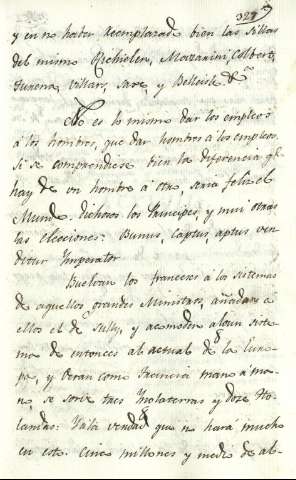 327
y en no haber reemplazado bien las sillas
del mismo Richelieu, Mazarini, Colbert,
Turena, Villars, Saxe, y Belleisle &ª
No es lo mismo dar los empleos
á los hombres, que dar hombres á los empleos.
Si se comprendiese bien la diferencia qe
hay de un hombre á otro, seria feliz el
Mundo, dichosos los Principes, y mui otras
las elecciones: Bonus, captus, aptus
ditur Imperator
Buelvan los franceses á los sistemas
de aquellos grandes Ministros, añadan á
ellos el de Sully, y acomoden algun siste-
ma de entonces al actual de la Euro-
pa, y veran como Francia mano á ma-
no, se sorve tres Inglaterras y doze Ho-
landas: Y á la verdad que no hará mucho
en esto. Cinco millones y medio de al-